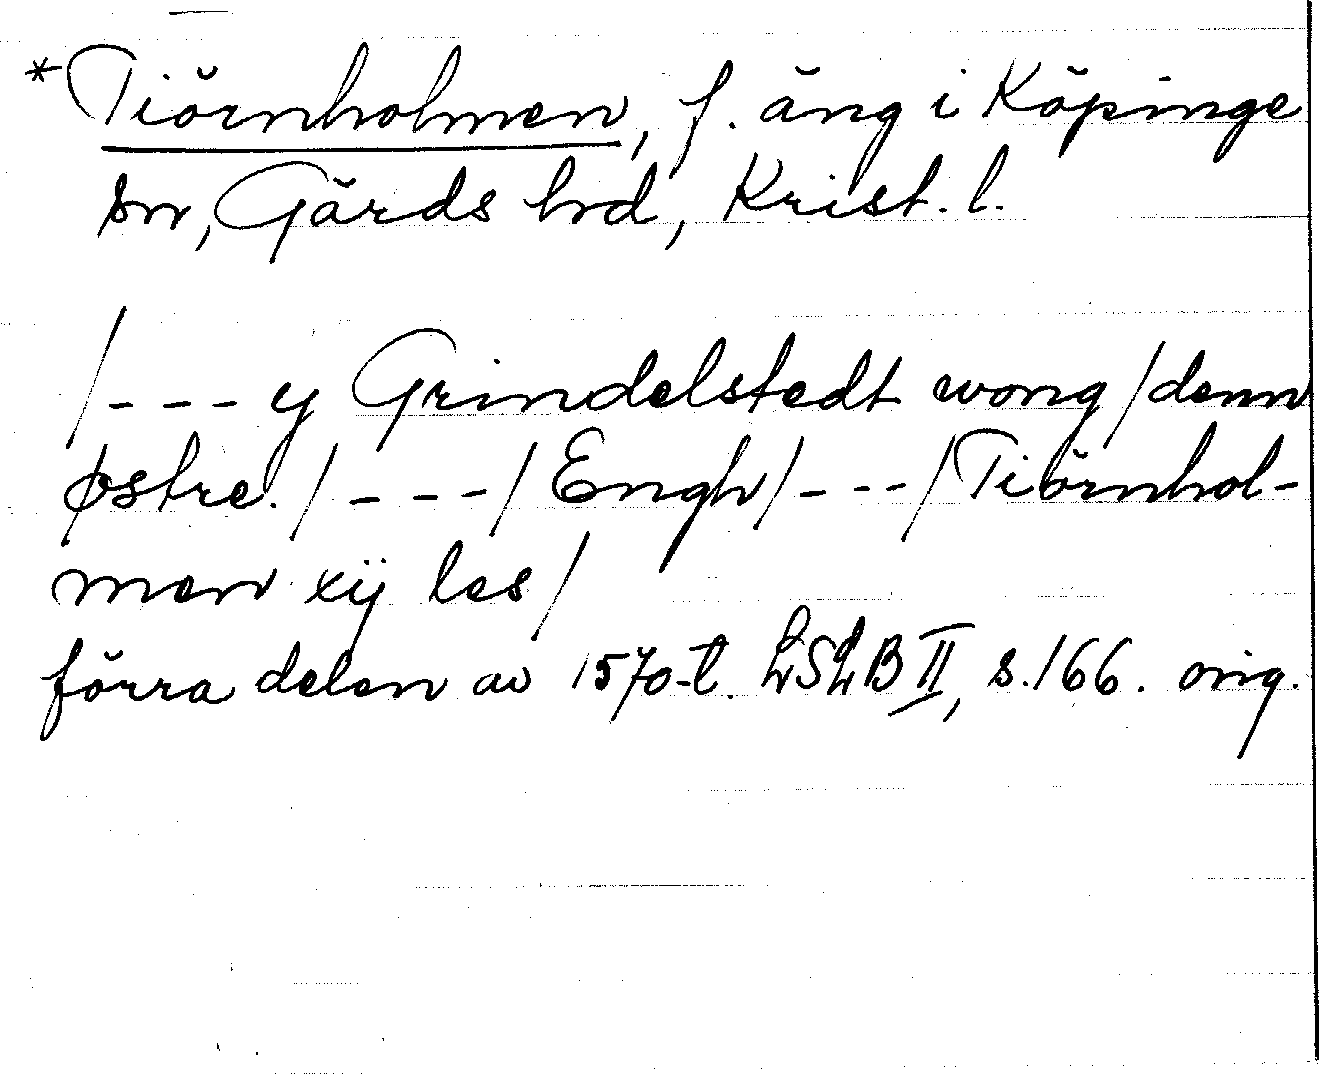 *Tiörnholmen, f. äng i Köpinge
sn, Gärds hd, Krist. l.
/--- y Grindelstedt wong/denn
østre./---/Engh/---/Tiörnhol-
men xij les/
förra delen av 1570-t. LSLB II, s. 166. orig.